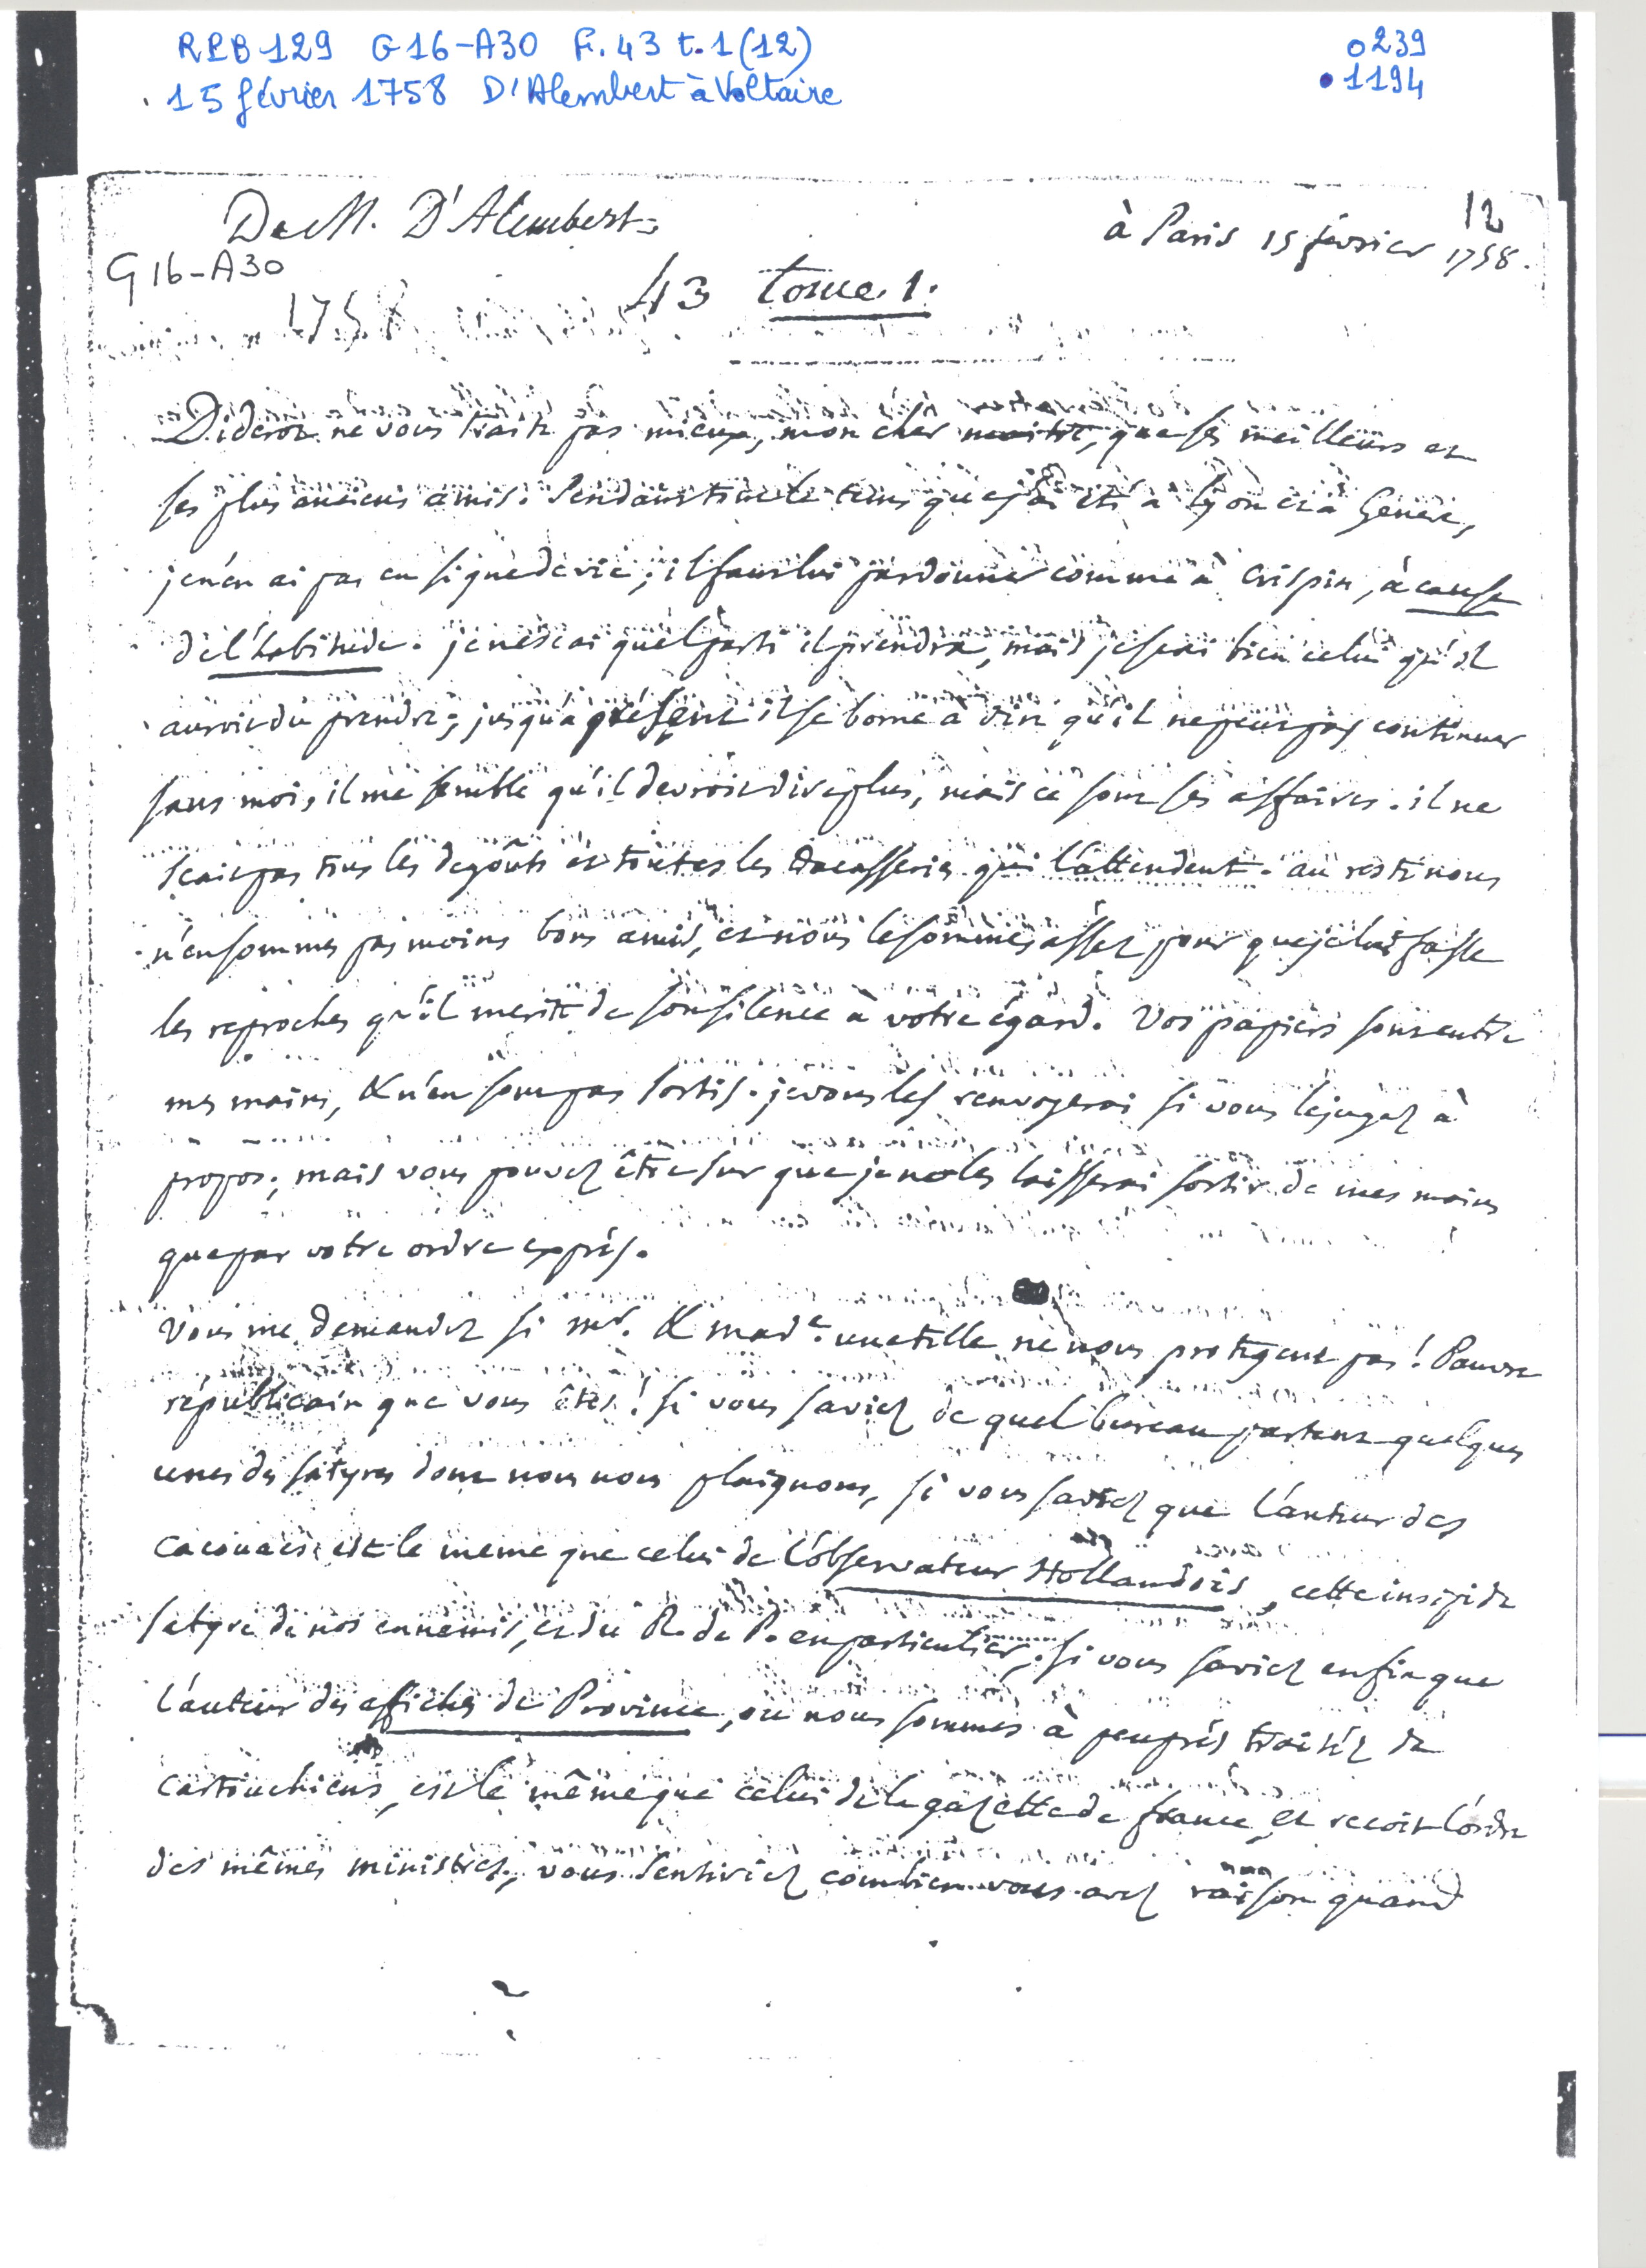 RPB 129 G16-A30 F. 43 t. 1 (12)
0239
15 février 1758 D'Alembert à Voltaire
1194
12
De M. D'Alembert
à Paris 15 février 1758.
G16-A30
43 tome. 1.
1758
Diderot ne vous traite pas mieux, mon cher maitre, que ses meilleurs et
ses plus anciens amis. Pendant tout le tems que j'ai été à Lyon et à Geneve,
je n'en ai pas eu signe de vie; il faut lui pardonner comme à Crispin, à cause
de l'habitude. je ne scai quel parti il prendra, mais je scai bien celui qu'il
auroit du prendre; jusqu'à présent il se borne à dire qu'il ne peut pas continuer
sans moi, il me semble qu'il devroit dire plus, mais ce sont ses affaires. il ne
scait pas tous les degoûts et toutes les tracasseries qui l'attendent. au reste nous
n'en sommes pas moins bons amis, et nous le sommes assez pour que je lui fasse
les reproches qu'il merite de son silence à votre égard. Vos papiers sont entre
mes mains, & n'en sont pas sortis. je vous les renvoyerai si vous le jugez à
propos; mais vous pouvez être sur que je ne les laisserai sortir de mes mains
que par votre ordre exprès.
Vous me demandez si mr. & made. une telle ne nous protegent pas! Pauvre
républicain que vous êtes! si vous saviez de quel bureau partent quelques
unes des satyres dont nous nous plaignons, si vous saviez que l'auteur des
cacouacs est le meme que celui de l'observateur Hollandois, cette insipide
satyre de nos ennemis, et du R. de P. en particulier; si vous saviez enfin que
l'auteur des affiches de Province, où nous sommes à peu près traitéz de
cartouchiens, est le même que celui de la gazette de france, et recoit l'ordre
des mêmes ministres, vous sentiriez combien vous avez raison quand